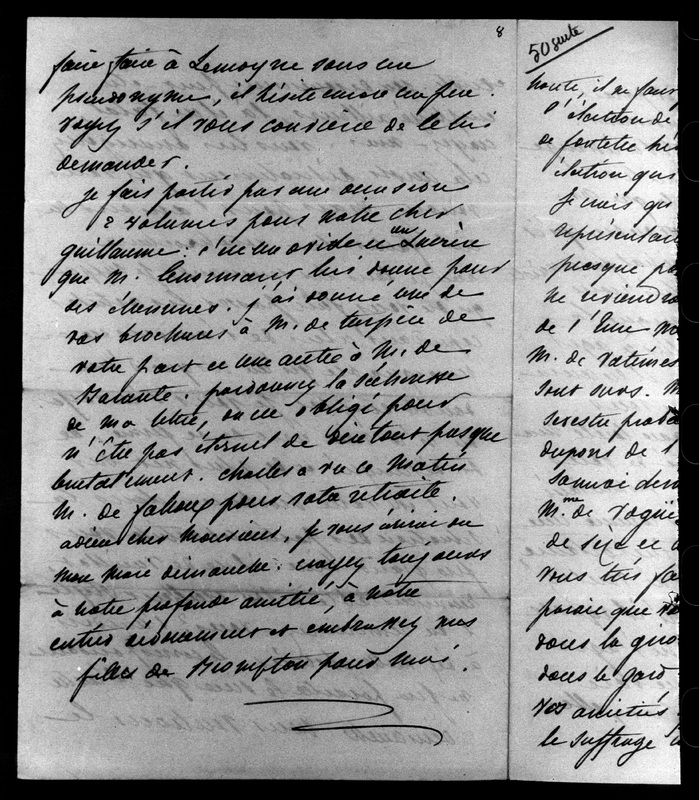 8
faire faire à Lemoyne sous un
pseudonyme, il hésite encore un peu.
voyez s'il vous convient de le lui
demander.
je fais partir par une occasion
2 volumes pour notre cher
guillaume. c'est un ovide et un Lucrèce
que M. Lenormant lui donne pour
ses étrennes. j'ai donné une de
vos brochures à M. de
votre part et une autre à M. de
Barante. pardonnez la sécheresse
de ma lettre, on est obligé pour
n'être pas éternel de dire tout presque
brutalement. charles a vu ce matin
M. de pour votre retraite.
adieu cher monsieur, je vous écrirai ou
mon mari dimanche. croyez toujours
à notre profonde amitié, à notre
entier dévouement et embrassez mes
filles de Brompton pour moi.
50 suite
honte, il en faut
l'élection de
de
élection qui
je crois qu
représentan
presque pa
ne reviendra
de l'Eure
M. de Vatimes
sont surs. M
dupons de l'
M.me de
de Sèze et
vous très fa
paraie que
dans la giro
dans le gard
vos amitiés
le suffrage